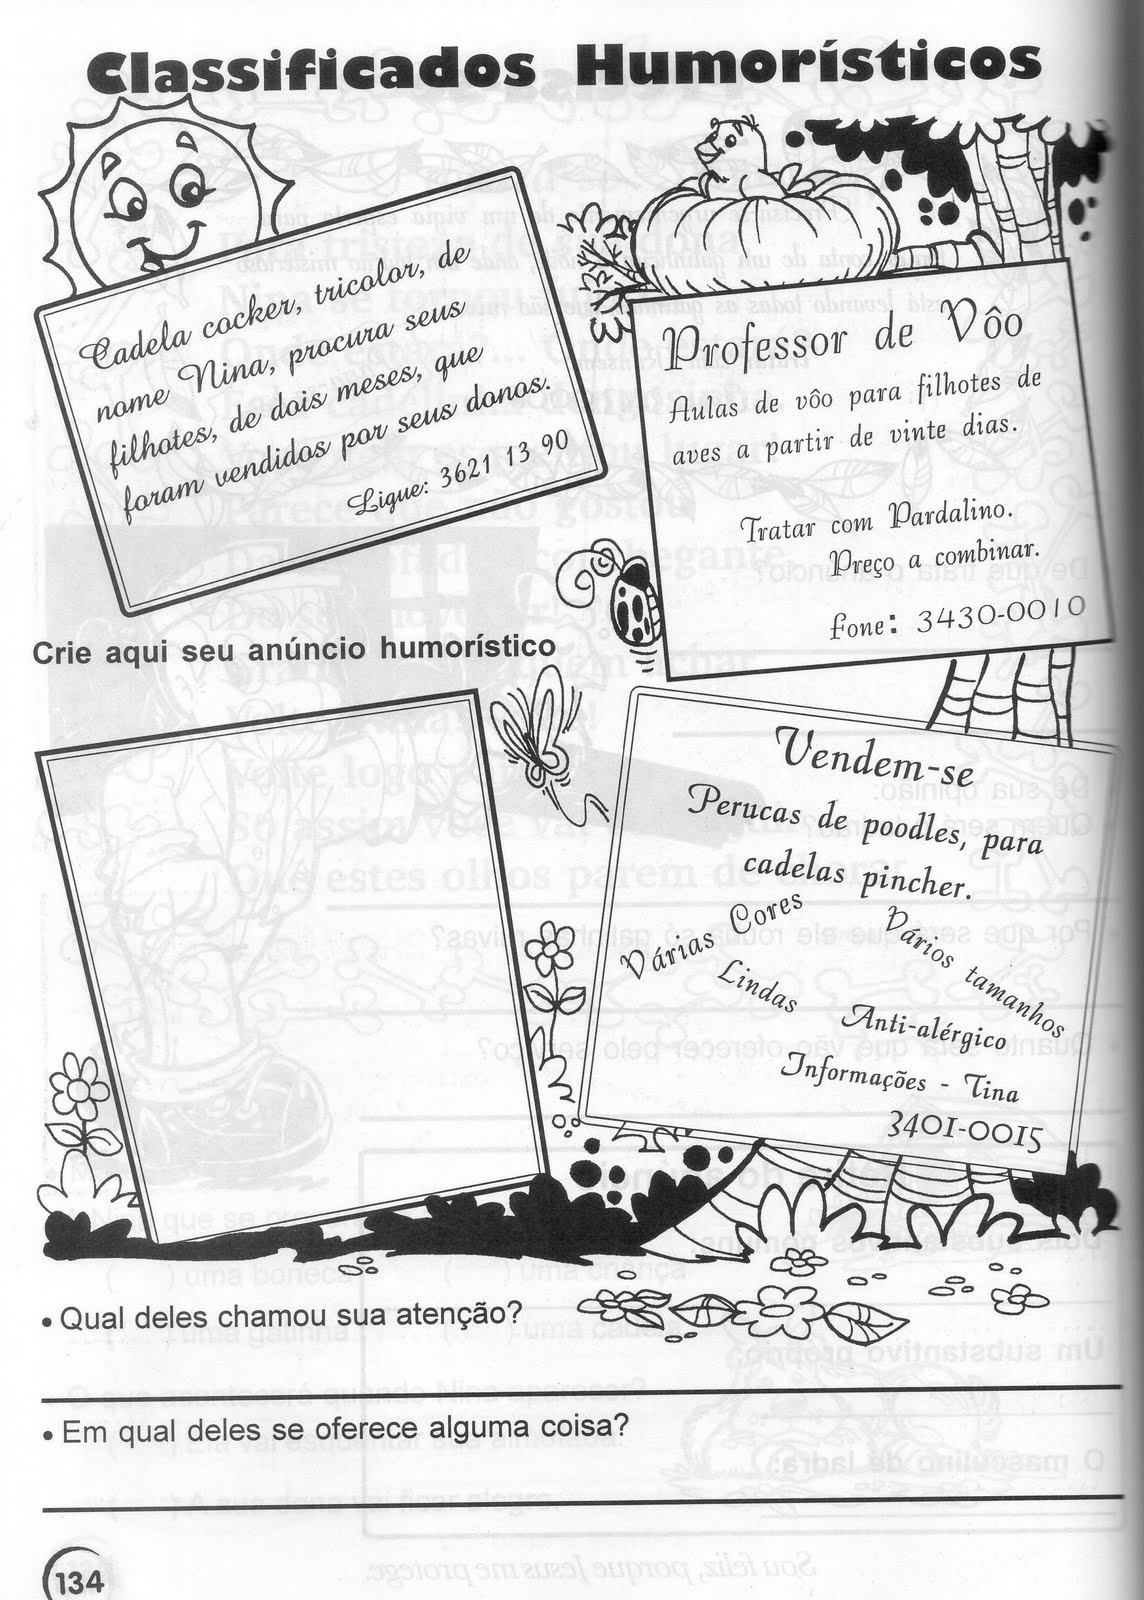 Classificados Humorísticos
Cadela cocker, tricolor, de
nome Nina, procura seus
filhotes, de dois meses, que
foram vendidos por seus donos.
Ligue: 3621 13 90
Professor de Vôo
Aulas de vôo para filhotes de
aves a partir de vinte dias.
Tratar com Pardalino.
Preço a combinar.
fone: 3430-0010
Crie aqui seu anúncio humorístico
Vendem-se
Perucas de poodles, para
cadelas pincher.
Várias Cores
Vários tamanhos
Lindas
Anti-alérgico
Informações - Tina
3401-0015
• Qual deles chamou sua atenção?
• Em qual deles se oferece alguma coisa?
134